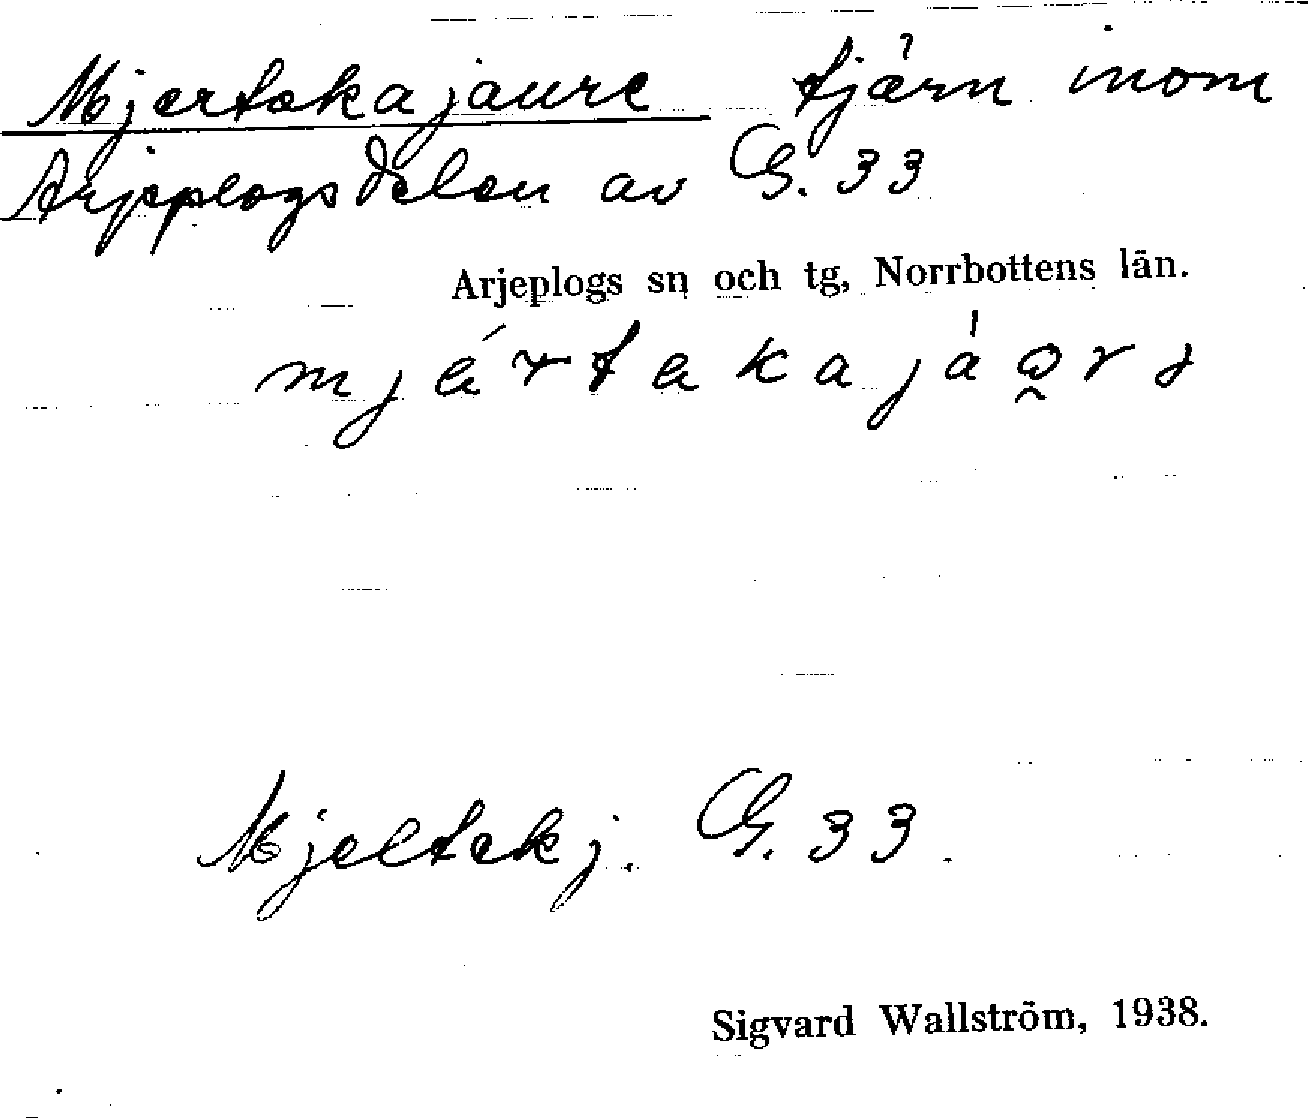 Mjertekajaure tjärn inom
Arjeplogsdelen av G. 33
Arjeplogs sn och tg, Norrbottens län.
Mjeltekj. G. 33.
Sigvard Wallström, 1938.